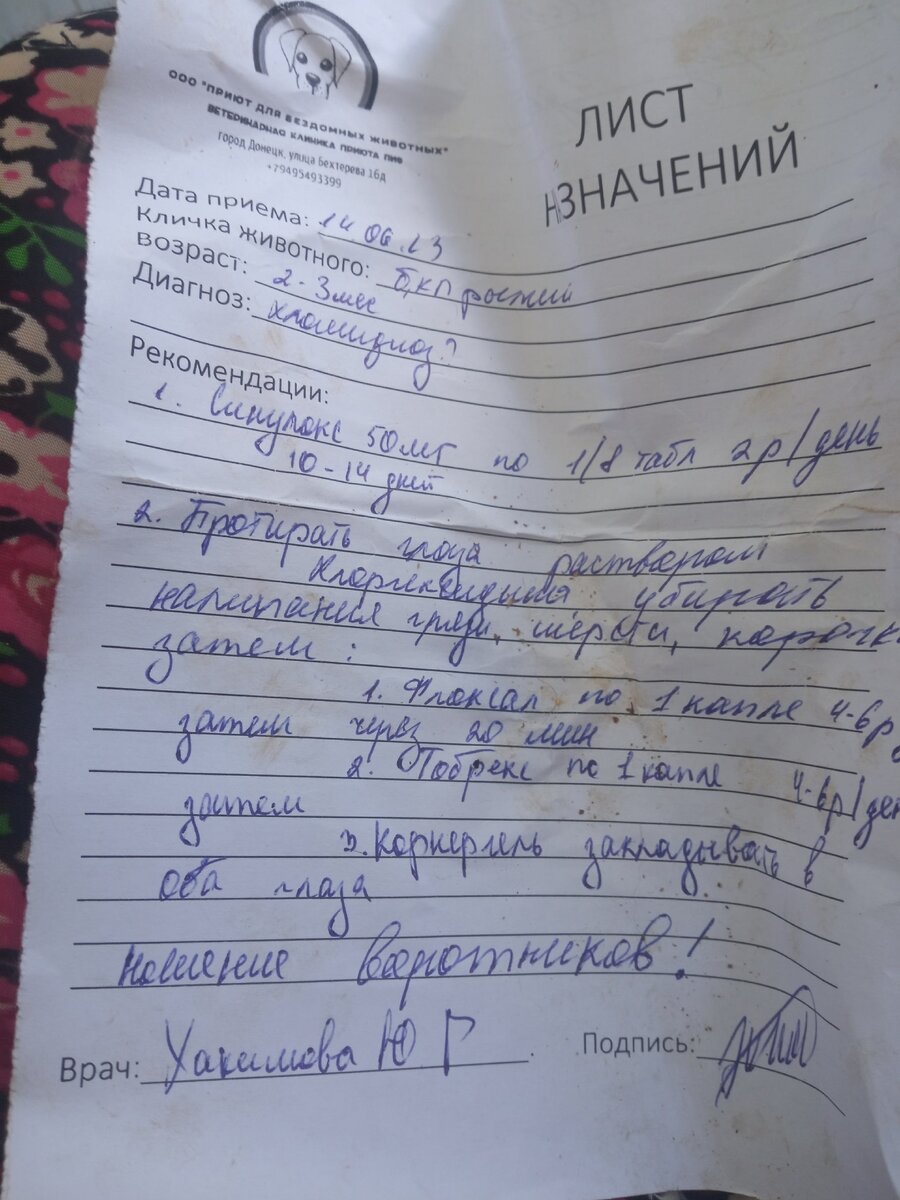 ООО "ПРИЮТ ДЛЯ БЕЗДОМНЫХ ЖИВОТНЫХ"
ВЕТЕРИНАРНАЯ КЛИНИКА ПРИЮТА ПИФ
город Донецк, улица Бехтерева 16д
+79495493399
ЛИСТ
НАЗНАЧЕНИЙ
Дата приема: 14.06.23
Кличка животного: б,кп рыжий
возраст: 2-3мес
Диагноз: хламидиоз?
Рекомендации:
1. Синулокс 50мг по 1/8 табл 2р/день
10-14 дней
2. Протирать глаза раствором
Хлоргексидина убирать
налипания грязи, шерсти, корочк
затем:
1. Флоксал по 1 капле 4-6р
затем через 20 мин
2. Тобрекс по 1 капле 4-6р/ден
затем
3. Корнергель закладывать в
оба глаза
ношение воротников!
Врач: Хакимова Ю Г Подпись: